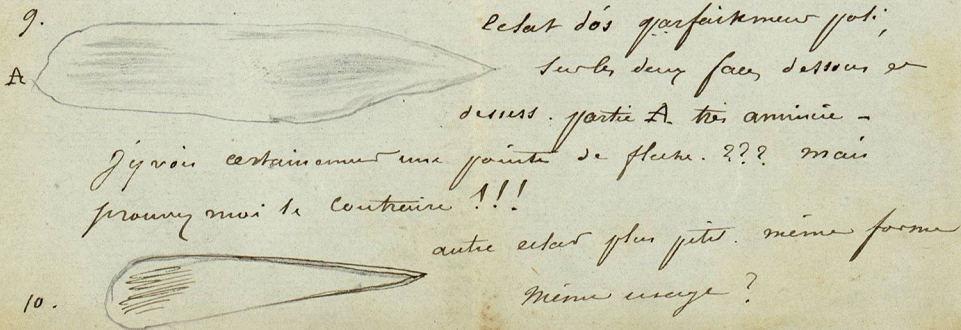 9.
eclat d'os parfaitement poli,
A
sur les deux faces dessous et
dessus. partie A très amincie -
J'y vois certainement une pointe de fleche. ??? mais
prouvez moi le contraire !!!
autre eclat plus petit. même forme
10.
même usage ?